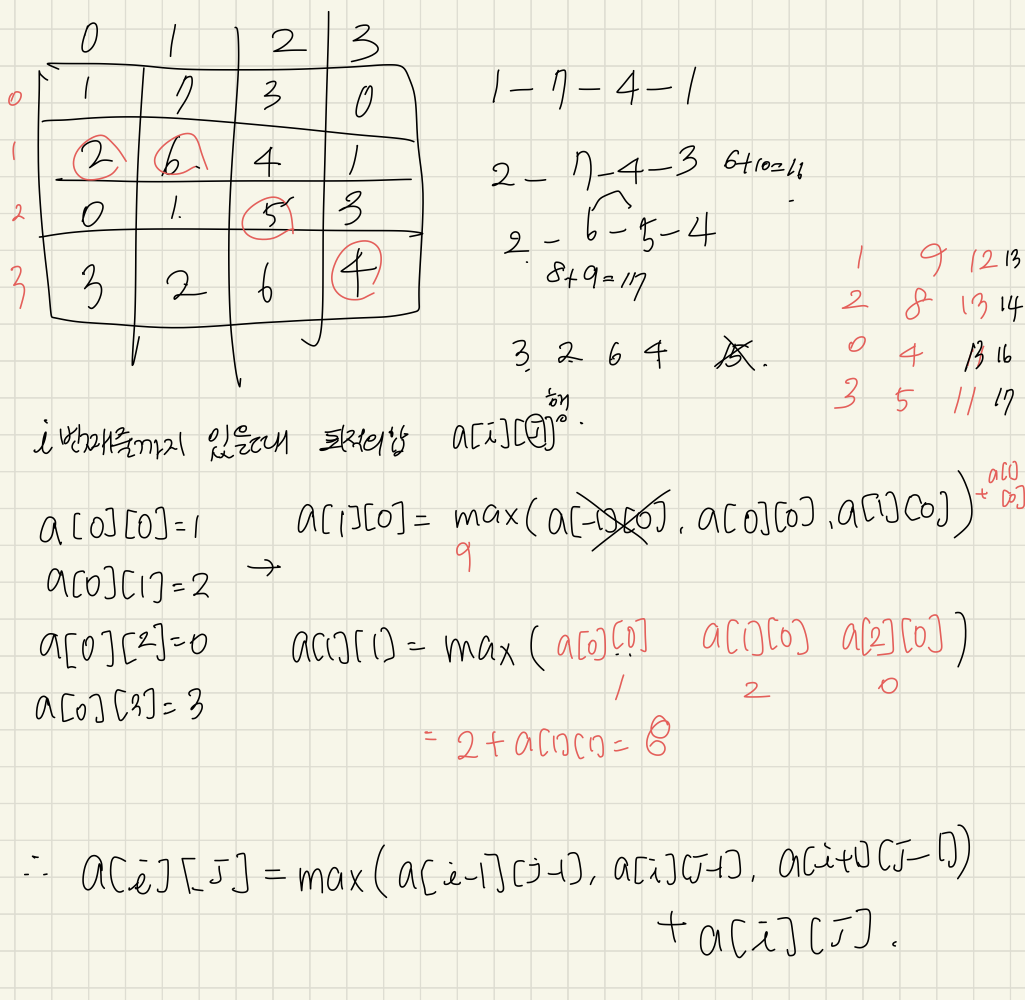 0 1 2 3
0 1 7 3 0
1 2 6 4 1
2 0 1 5 3
3 3 2 6 4
1 - 7 - 4 - 1
2 - 7 - 4 - 3 6+10=16
2 - 6 - 5 - 4
8+9=17
3 2 6 4 15.
1 9 12 13
2 8 13 14
0 4 13 16
3 5 11 17
i번째줄까지 있을때 최적의합 a[i][j]
해
a[0][0]=1
a[0][1]=2
a[0][2]=0
a[0][3]=3
→
a[1][0] = max(a[-1][0], a[0][0], a[1][0]) + a[1][0]
9
a[1][1] = max(a[0][0] a[1][0] a[2][0])
1 2 0
= 2 + a[1][1] = 8
∴ a[i][J] = max(a[i-1][j-1], a[i][J-1], a[i+1][J-1])
+ a[i][J].